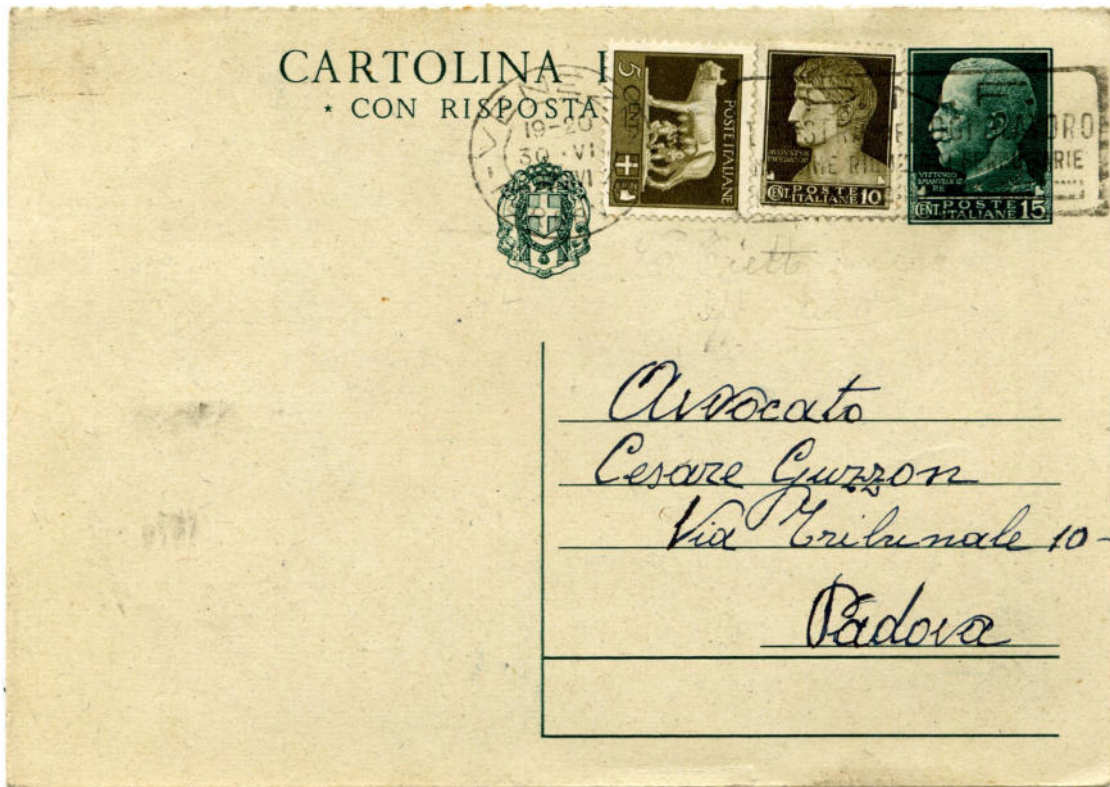 CARTOLINA
* CON RISPOSTA
19-20
30 · VI
5 CENT.
POSTE ITALIANE
CENT. POSTE ITALIANE 10
VITTORIO
EMANUELE III
RE
CENT. POSTE ITALIANE 15
Avvocato
Cesare Guzzon
Via Tribunale 10-
Padova